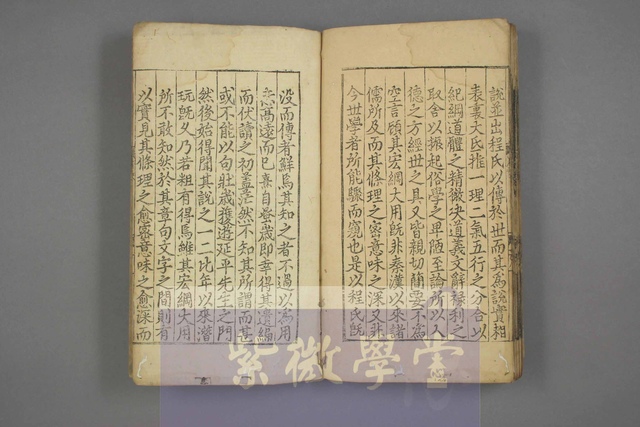 說並出程氏以傳於世而其爲說實相
表裏大氐推一理二氣五行之分合以
紀綱道體之精微決道義文辭祿利之
取舍以振起俗學之卑陋至論所以入
德之方經世之具又皆親切簡要不爲
空言顧其宏綱大用旣非秦漢以來諸
儒所及而其條理之密意味之深又非
今世學者所能驟而窺也是以程氏旣
沒而傳者鮮焉其知之者不過以爲用
意高遠而已熹自蚤歲卽幸得其遺編
而伏讀之初蓋茫然不知其所謂而甚
或不能以句壯歲獲遊延平先生之門
然後始得聞其說之一二比年以來潛
玩旣久乃若粗有得焉雖其宏綱大用
所不敢知然於其章句文字之間則有
以實見其條理之愈密意味之愈深而
紫微學堂